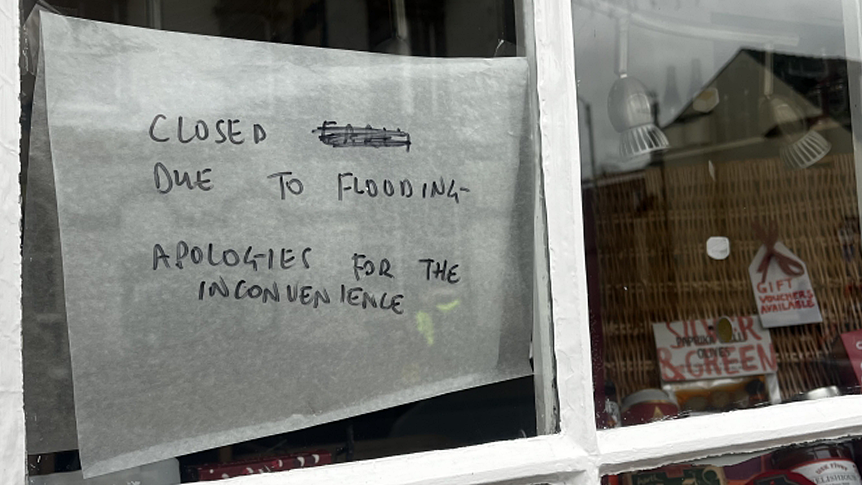 CLOSED
DUE TO FLOODING
APOLOGIES FOR THE
INCONVENIENCE
GIFT
VOUCHERS
AVAILABLE
SILVER
& GREEN